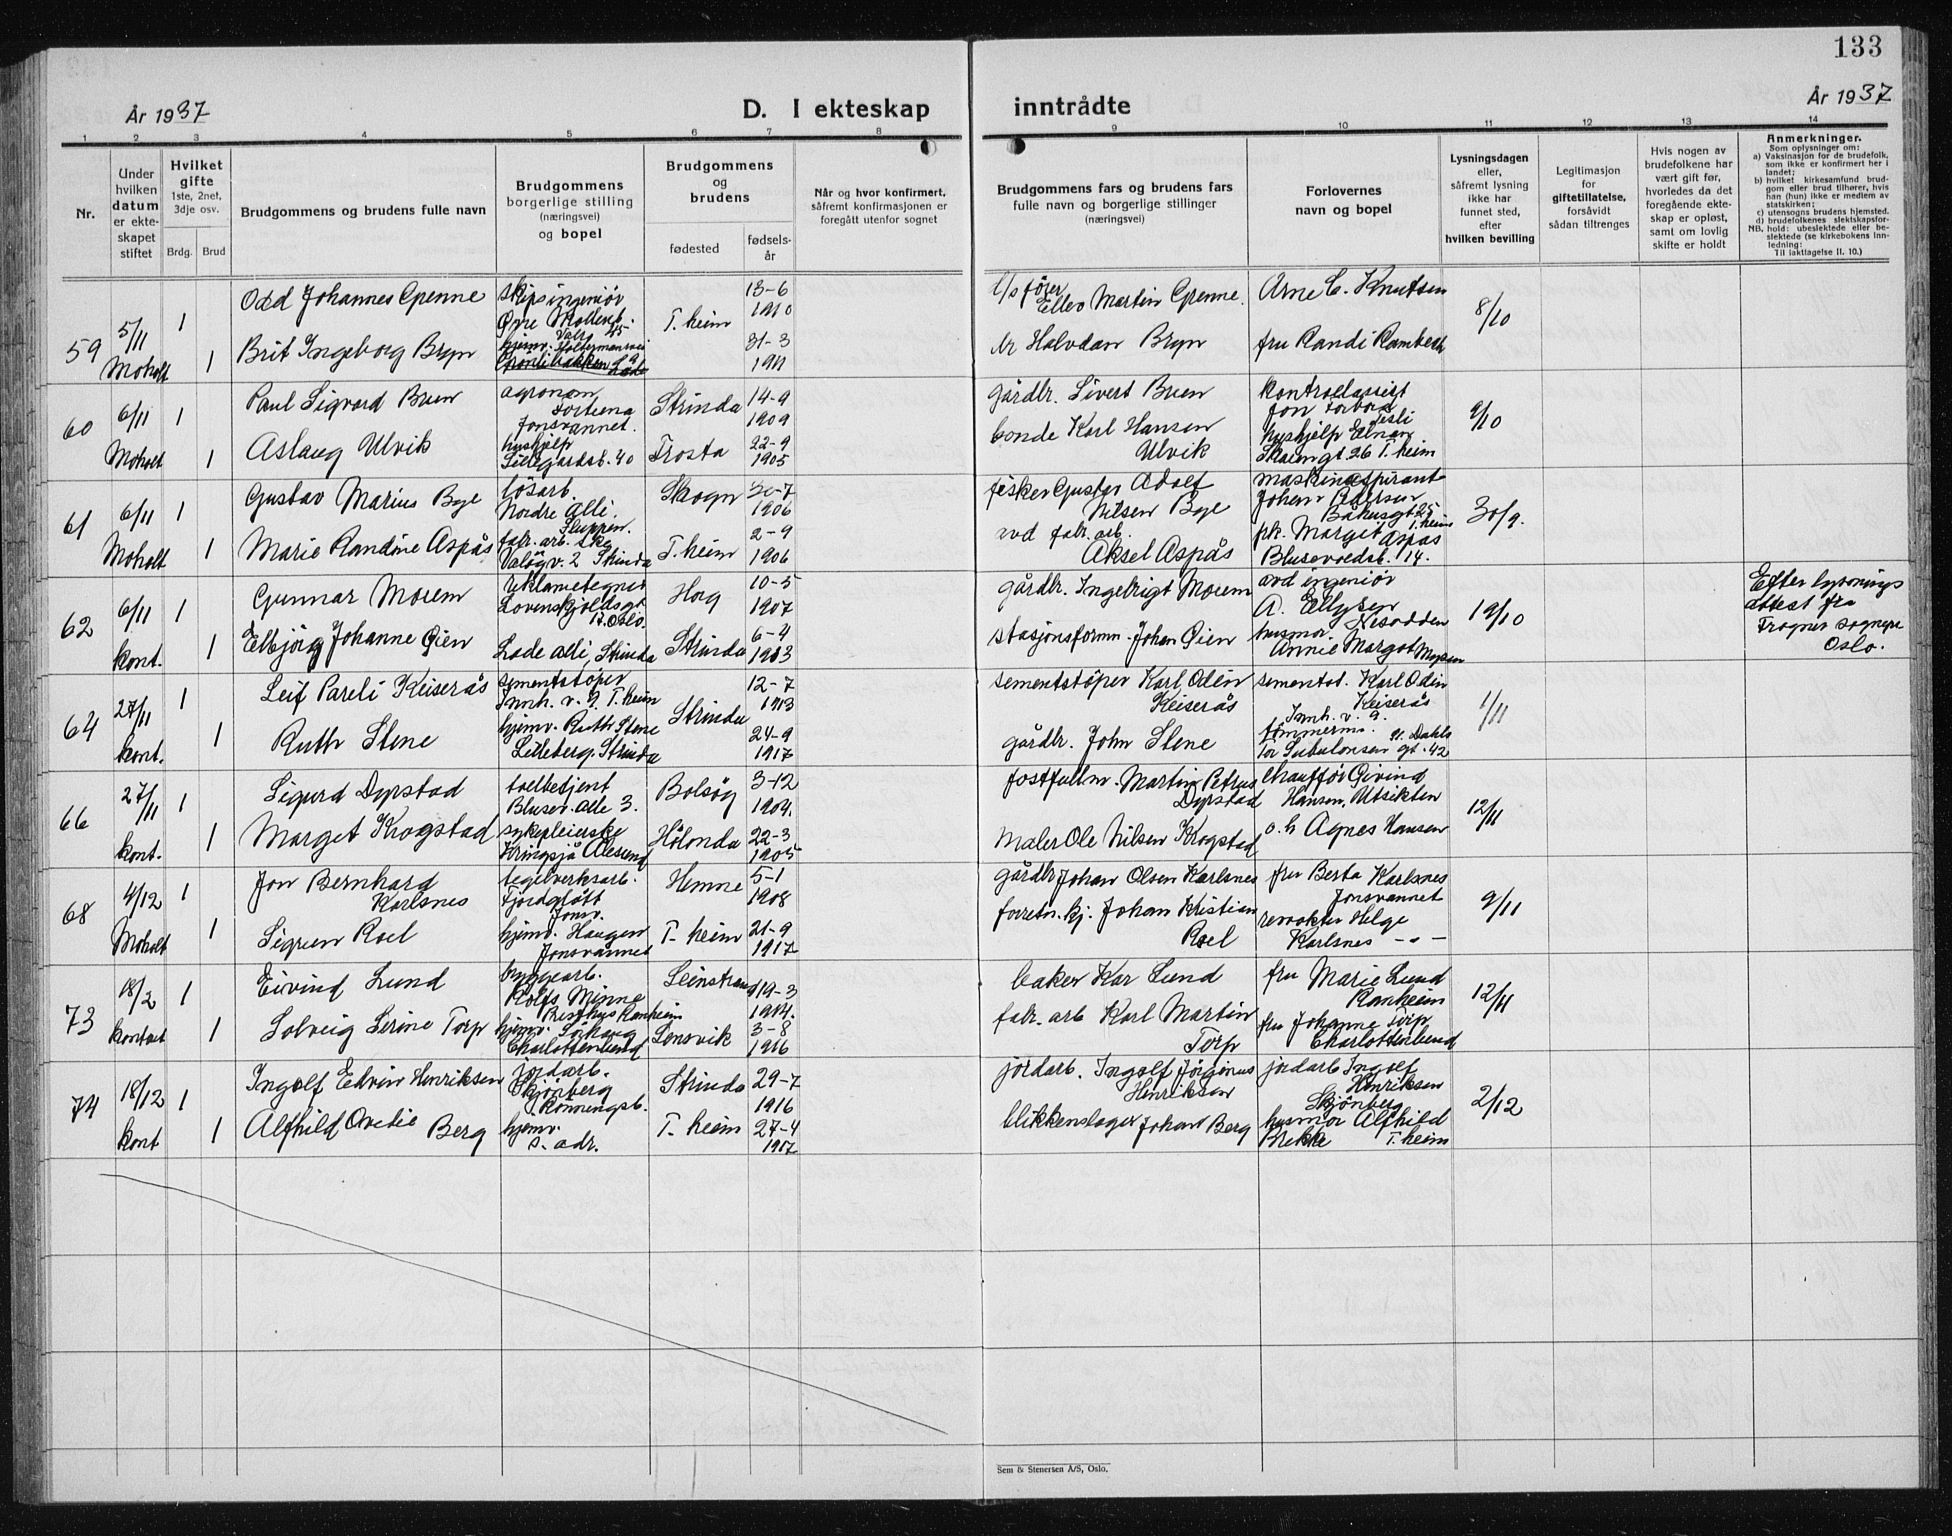 133
År 1937
D. I ekteskap inntrådte
År 1937
1 2 3 4 5 6 7 8 9 10 11 12 13 14
Nr.
Under hvilken datum er ekteskapet stiftet
Hvilket gifte 1ste, 2net, 3dje osv.
Brdg. Brud
Brudgommens og brudens fulle navn
Brudgommens borgerlige stilling (næringsvei) og bopel
Brudgommens og brudens
fødested
fødselsår
Når og hvor konfirmert, såfremt konfirmasjonen er foregått utenfor sognet
Brudgommens fars og brudens fars fulle navn og borgerlige stillinger (næringsvei)
Forlovernes navn og bopel
Lysningsdagen eller, såfremt lysning ikke har funnet sted, efter hvilken bevilling
Legitimasjon for giftetillatelse, forsåvidt sådan tiltrenges
Hvis nogen av brudefolkene har vært gift før, hvorledes da det foregående ekteskap er opløst, samt om lovlig skifte er holdt
Anmerkninger.
Som oplysninger om:
a) Vaksinasjon for de brudefolk, som ikke er konfirmert her i landet;
b) hvilket kirkesamfund brudgom eller brud tilhører, hvis han (hun) ikke er medlem av statskirken;
c) utensogns brudens hjemsted.
d) brudefolkenes slektskapsforhold: ubeslektede eller beslektede (se kirkebokens innledning:
NB.
Til iakttagelse II. 10.)
59 5/11 Moholt 1 1
Odd Johannes Grenne
skipsingeniør
Øvre Møllenb. 45
T. heim
13-6 1910
Ellev Martin Grenne
Arne C. Knutsen
8/10
Brit Ingeborg Bryn
hjemv.
31-3 1911
Halvdan Bryn
fru Randi Ramberh
60 6/11 Moholt 1 1
Paul Sigvard Bruen
agronom
Jonsvannet.
Strinda
14-9 1909
gårdbr. Sivert Bruen
kontrollassist
9/10
Aslaug Ulvik
hushjelp
Lillegårdsb. 40
Frosta
22-9 1905
bonde Karl Hansen Ulvik
hushjelp
26 T. heim
61 6/11 Moholt 1 1
Gustav Marius Bye
løsarb.
Nordre Alle.
Sluppen.
Skogn
30-7 1906
fisker Gustav Adolf Nilsen Bye
maskinaspirant
Johan Pedersen
Båhusgt 25 T. heim
30/9.
Marie Randine Aspås
fabr. arb.
Valøyv. 2 Strinda
T. heim
2-9 1906
avd fabr. arb. Aksel Aspås
Margit Aspås
Blusevoldsb. 14.
62 6/11 kont. 1 1
Gunnar Morem
reklametegner
Lovenskjoldsgt
Oslo.
Horg
10-5 1907
gårdbr. Ingebrigt Morem
avd ingeniør
A. Ellysen
Nesodden
19/10
Efter lysnings
attest fra
Frogner sognepr
Oslo.
Elbjørg Johanne Øien
Lade alle, Strinda
Strinda
6-4 1903
stasjonsformn. Johan Øien
husmor
Annie Margot
64 27/11 kont. 1 1
Leif Pareli Keiserås
sementstøper
Innh. v. 9. T. heim
Strinda
12-7 1913
sementstøper Karl Odin Keiserås
sementst. Karl Odin Keiserås
Innh. v. 9.
1/11
Ruth Stene
hjemv. Ruth Stene
Lilleberg, Strinda
24-9 1917
gårdbr. John Stene
tømmerm.
gt. 42
66 27/11 kont. 1 1
Sigurd Dyrstad
tollbetjent
Blusev. alle 3.
Bolsøy
3-12 1904.
Martin Petrus Dyrstad
Chauffør Eivind Hansen, Utsikten
12/11
Marget Krogstad
sykepleierske
Kringsjå Ålesund
Hølonda
22-3 1905
Maler Ole Nilsen Krogstad
Agnes Hansen
68 4/12 Moholt 1 1
Jon Bernhard Karlsnes
teglverksarb.
Fjordgløtt
Jonsv.
Hemne
5-1 1908
gårdbr Johan Olsen Karlsnes
fru Berta Karlsnes
Jonsvannet
9/11
Sigrun Roel
hjemv. Haugen
Jonsvannet
T. heim
21-9 1917
forretn. bj. Johan Kristian Roel
Helge Karlsnes -"-
73 18/2 kontoret 1 1
Eivind Lund
byggearb.
Rolfs Minne
Ranheim
Leinstrand
19-3 1914.
baker Kar Lund
fru Marie Lund
Ranheim
12/11
Solveig Serine Torp
hjemv.
Charlottenlund
Lensvik
3-8 1916
fabr. arb Karl Martin Torp
fru Johanne Torp
Charlottenlund
74 18/12 kont 1 1
Ingolf Edvin Henriksen
jordarb.
Skjønberg
Rønningsb.
Strinda
29-7 1916
jordarb. Ingolf Jørginus Henriksen
jordarb Ingolf Henriksen
Skjønberg
2/12
Alfhild Ovedie Berg
hjemv.
s. adr.
T. heim
27-4 1917
blikkenslager Johan Berg
husmor Alfhild Brekke T. heim
Sem & Stenersen A/S, Oslo.